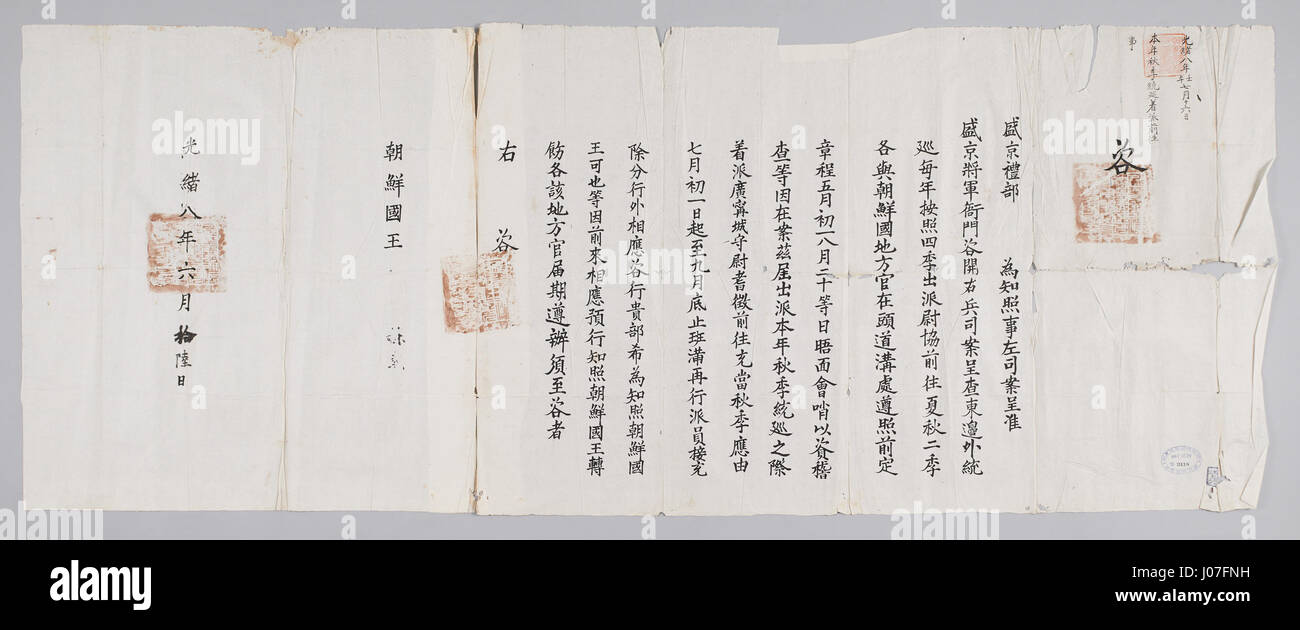 光緒八年壬午七月十六日
本年秋季統巡着派前往
事
咨
盛京禮部 為知照事左司案呈准
盛京將軍衙門咨開右兵司案呈查東邊外統
巡每年按照四季出派尉協前往夏秋二季
各與朝鮮國地方官在頭道溝處遵照前定
章程五月初一八月二十等日晤面會哨以資稽
查等因在案茲屆出派本年秋季統巡之際
着派廣甯城守尉耆徵前往充當秋季應由
七月初一日起至九月底止班滿再行派員接充
除分行外相應咨行貴部希為知照朝鮮國
王可也等因前來相應預行知照朝鮮國王轉
飭各該地方官屆期遵辦須至咨者
右 咨
朝鮮國王
光緒八年六月拾陸日
alamy stock photo
alamy
J07FNH
www.alamy.com